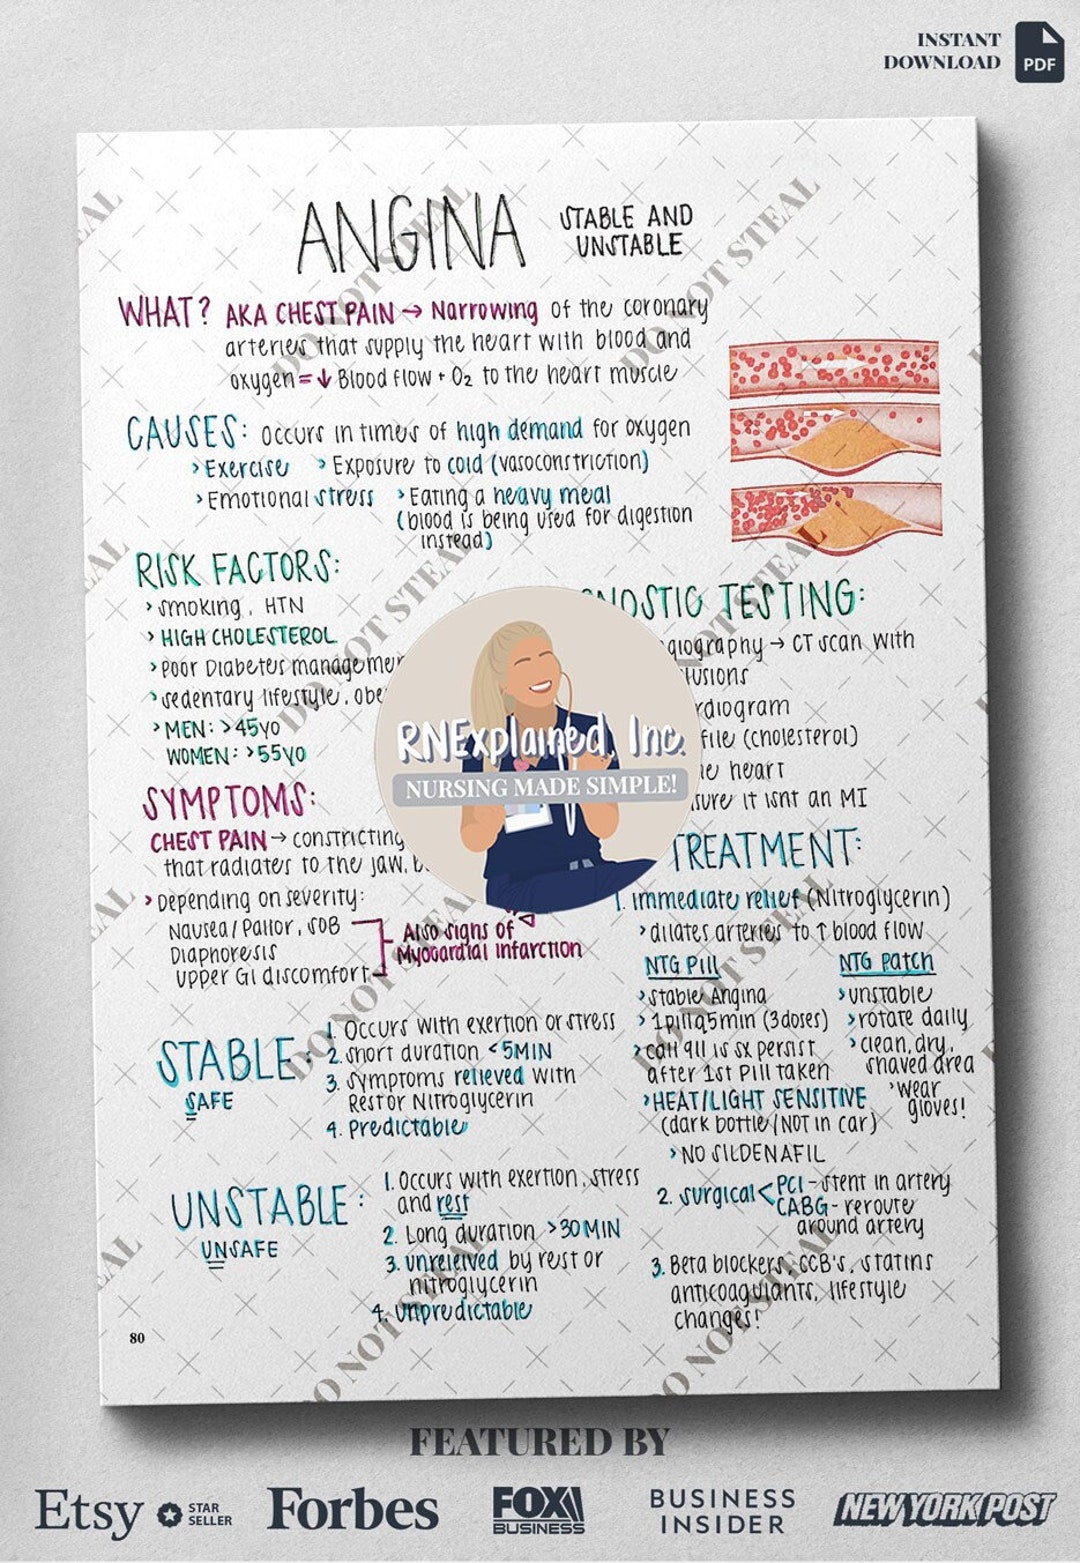 INSTANT
DOWNLOAD
PDF
ANGINA
STABLE AND
UNSTABLE
WHAT? AKA CHEST PAIN → Narrowing of the coronary
arteries that supply the heart with blood and
oxygen = ↓ Blood flow + O₂ to the heart muscle
CAUSES: occurs in times of high demand for oxygen
> Exercise > Exposure to cold (vasoconstriction)
> Emotional stress > Eating a heavy meal
(blood is being used for digestion
instead)
RISK FACTORS:
> smoking, HTN
> HIGH CHOLESTEROL
> Poor Diabetes
> sedentary lifestyle,
> MEN: >45yo
WOMEN: >55yo
SYMPTOMS:
CHEST PAIN → constricting
that radiates to the jaw,
> Depending on severity:
Nausea/Pallor, SOB
Diaphoresis
Upper GI discomfort
Also signs of
Myocardial infarction
STABLE:
SAFE
1. Occurs with exertion or stress
2. short duration <5MIN
3. symptoms relieved with
Rest or Nitroglycerin
4. Predictable
UNSTABLE:
UNSAFE
1. Occurs with exertion, stress
and rest
2. Long duration >30MIN
3. unreleived by rest or
nitroglycerin
4. Unpredictable
80
RNExplained, Inc.
NURSING MADE SIMPLE!
TESTING:
→ CT scan with
(cholesterol)
heart
it isnt an MI
TREATMENT:
1. immediate relief (Nitroglycerin)
> dilates arteries to ↑ blood flow
NTG Pill
> stable Angina
> 1pill q5min (3doses)
> call 911 is sx persist
after 1st Pill taken
> HEAT/LIGHT SENSITIVE
(dark bottle/NOT in car)
> NO SILDENAFIL
NTG Patch
> unstable
> rotate daily
> clean, dry,
shaved area
> wear
gloves!
2. surgical < PCI - stent in artery
CABG - reroute
around artery
3. Beta blockers, CCB's, statins
anticoagulants, lifestyle
changes!
DO NOT STEAL
FEATURED BY
Etsy STAR
SELLER
Forbes
FOX
BUSINESS
BUSINESS
INSIDER
NEW YORK POST